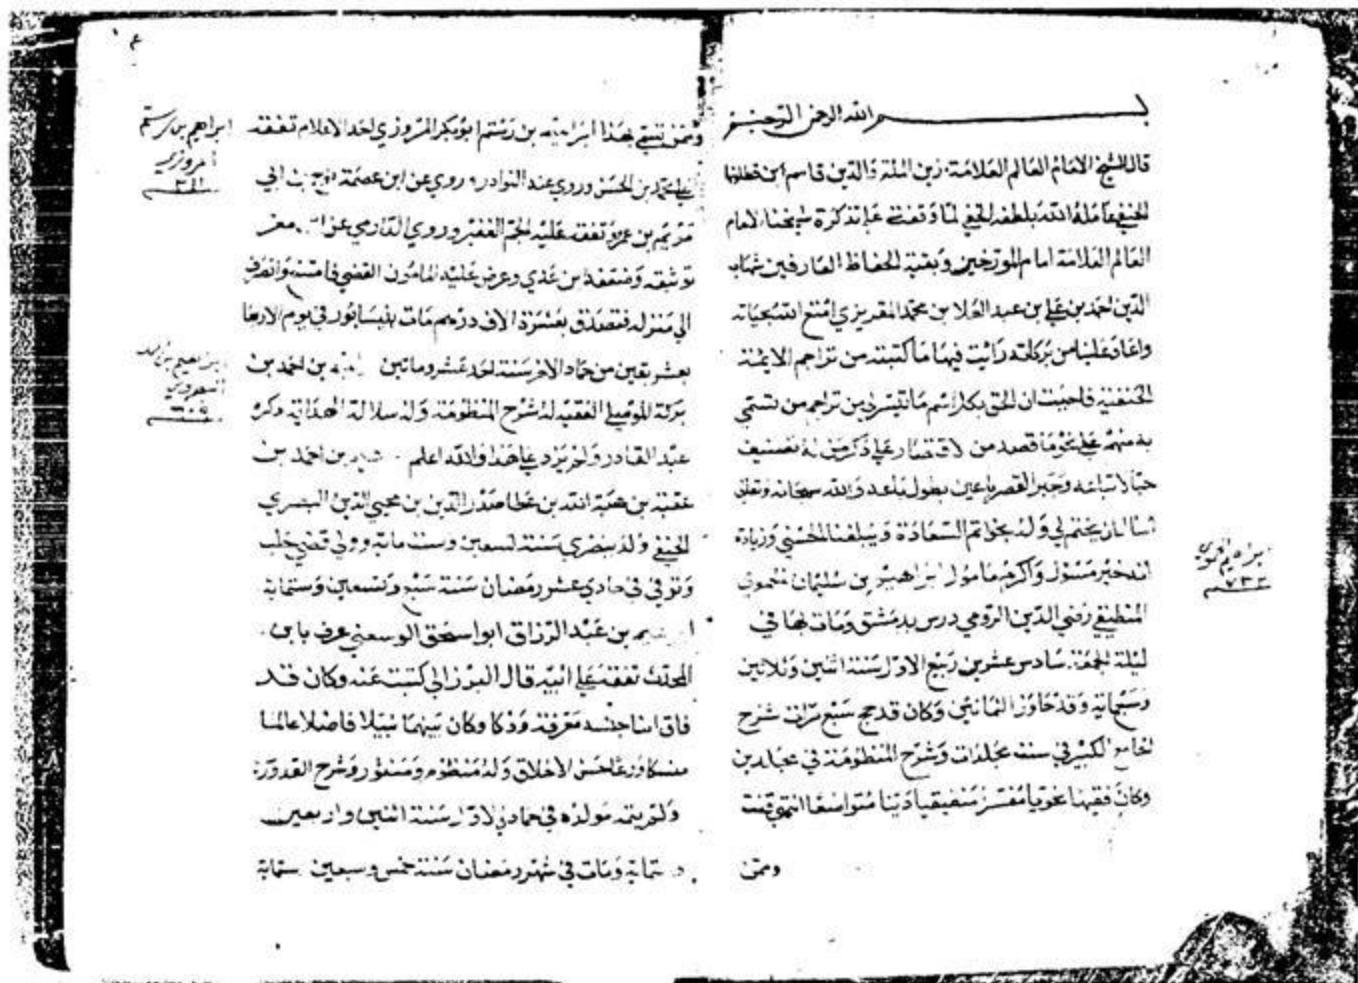 بسم الله الرحمن الرحيم
قال الشيخ الامام العالم العلامة زين الملة والدين قاسم ابن قطلوبغا
الحنفي عامله الله بلطفه الخفي لما وقفت على تذكرة شيخنا الامام
العالم العلامة امام المورخين وبقية الحفاظ العارفين شهاب
الدين احمد بن علي بن عبد العلا بن محمد المقريزي امتع الله بحياته
واعاد علينا من بركاته رايت فيها ما كتبته من تراجم الايمة
الحنفية فاحببت ان الحق بكل اسم ما تيسر لي من تراجم من تسمى
به منهم على نحو ما قصد من الاقتصار على ذكر من له تصنيف
حبا لاتباعه وجبر القصر باعي بطول باعه والله سبحانه وتعالى
اسال ان يختم لي وله بخواتم السعادة ويبلغنا الحسنى وزيادة
انه خير مسئول واكرم مامول ابراهيم بن سليمان الحموي
المنطيقي رضي الدين الرومي درس بدمشق ومات بها في
ليلة الجمعة سادس عشرين ربيع الاول سنة اثنين وثلاثين
وسبماية وقد جاوز الثمانين وكان قد حج سبع مرات شرح
الجامع الكبير في ستة مجلدات وشرح المنظومة في مجلدين
وكان فقيها نحويا مفسرا منطيقيا دينا متواضعا انتهى قلت
وممن
ابراهيم الحموي
٧٣٢
وممن تسمى بهذا ابراهيم بن رستم ابو بكر المروزي احد الاعلام تفقه
على محمد بن الحسن وروي عنه النوادر وروي عن ابن عصمة نوح بن ابي
مريم بن عمرو تفقه عليه الجم الغفير وروي الدارمي عن ابن معين
توثيقه وضعفه ابن عدي وعرض عليه المامون القضي فامتنع وانصرف
الي منزله فتصدق بعشرة الاف درهم مات بنيسابور في يوم الاربعا
بعشر بقين من جماد الاخر سنة احد عشر وماتين ابراهيم بن احمد بن
بركة الموصلي الفقيه له شرح المنظومة وله سلالة الهداية ذكره
عبد القادر ولم يزد علي هذا والله اعلم ابراهيم بن احمد بن
عقبة بن هبة الله بن عطا صدر الدين بن محيي الدين البصري
الحنفي ولد ببصري سنة تسعين وست ماية وولي قضي حلب
وتوفي في حادي عشر رمضان سنة سبع وتسعين وستماية
ابراهيم بن عبد الرزاق ابو اسحق الرسعني عرف بابن
المحدث تفقه على ابيه قال البرزالي كتبت عنه وكان قد
فاق ابنا جنسه معرفة وذكا وكان نبيها نبيلا فاضلا عالما
متورعا حسن الاخلاق وله منظوم ومنثور وشرح القدوري
ولم يتمه مولده في جمادي الاول سنة اثنين واربعين
وستماية ومات في شهر رمضان سنة خمس وسبعين ستماية
ابراهيم بن رستم
المروزي
٢١١